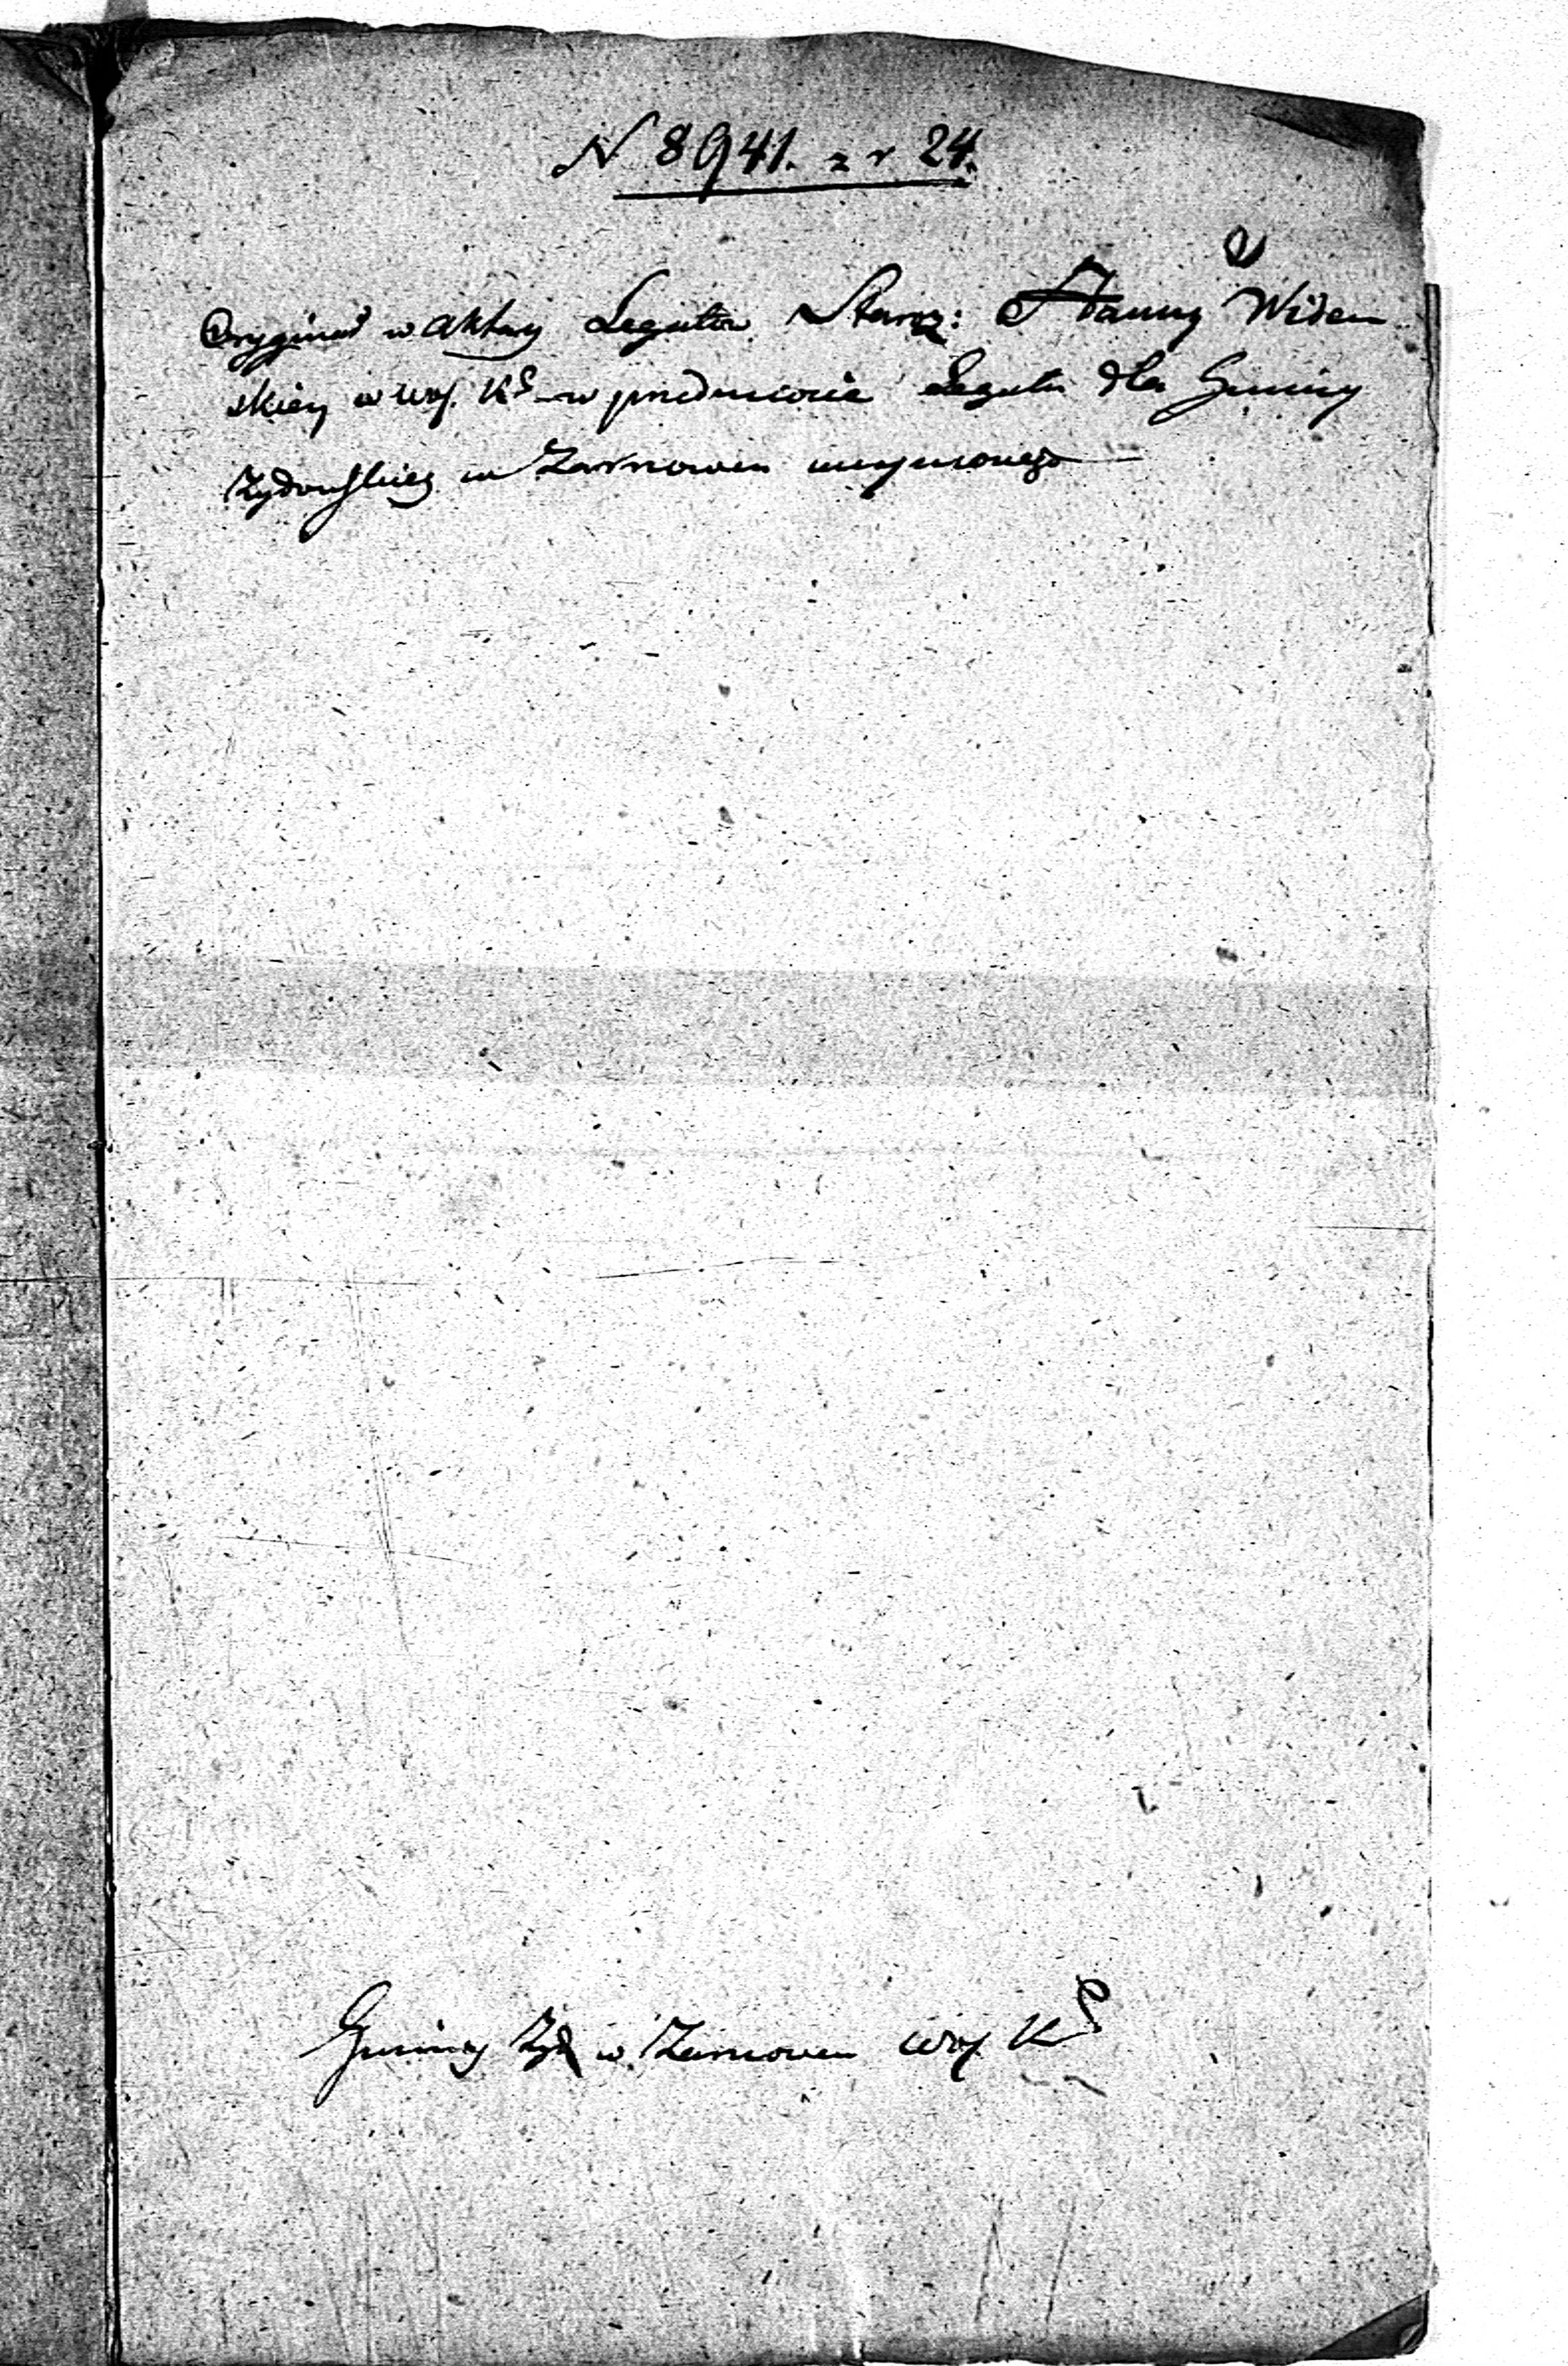 N 8941. z r 24.
2
Oryginał w aktach Legatów Staroz: Hanny Widem
skiey w Woj. KS w przedmiocie Legatu dla Gminy
Żydowskiey w Zarnowcu uczynionego
Gminy Żyd w Zarnowcu Woj KS